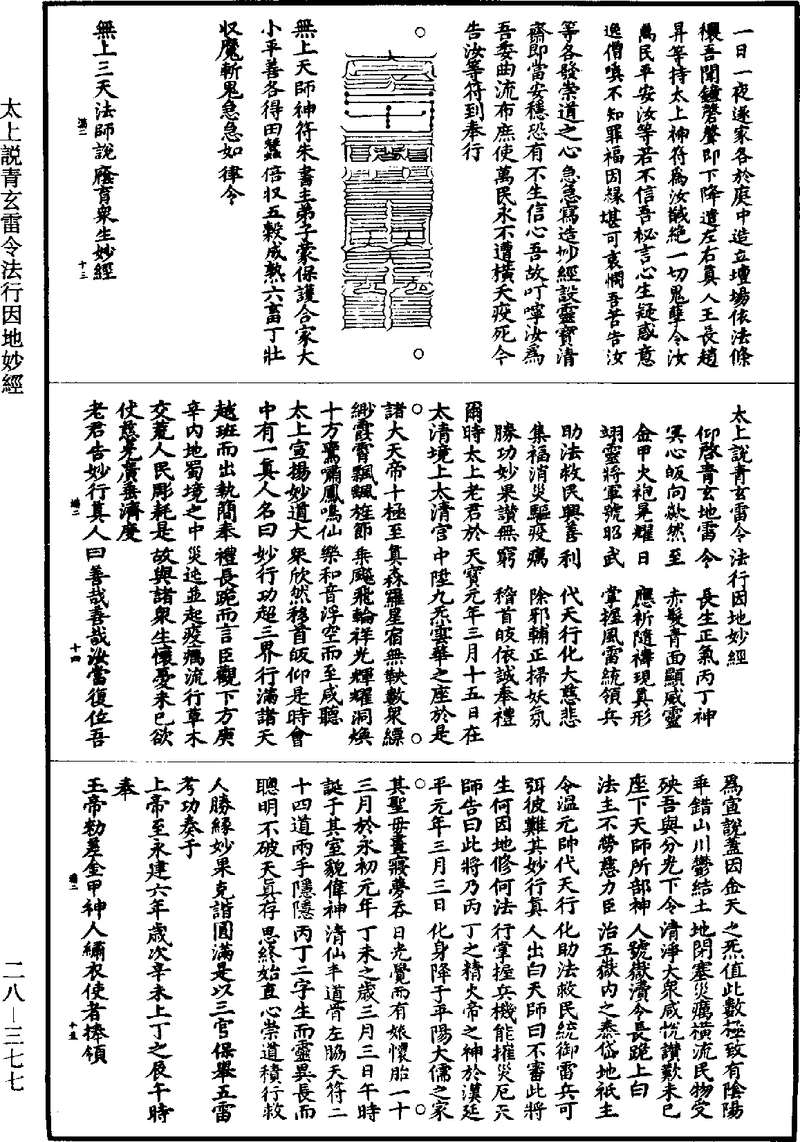 一日一夜遂家各於庭中造立壇場依法條
禳吾聞鐘磬聲即下降遣左右真人王長趙
昇等持太上神符為汝誠絕一切鬼孽令汝
萬民平安汝等若不信吾秘言心生疑惑意
逸僧嗔不知罪福因緣堪可哀憫吾苦告汝
等各發崇道之心急急寫造妙經設靈寶清
齋即當安穩恐有不生信心吾故叮嚀汝為
吾委曲流布庶使萬民永不遭橫夭疫死今
告汝等符到奉行
無上天師神符朱書主弟子蒙保護合家大
小平善各得田蠶倍收五穀成熟六畜丁壯
収魔斬鬼急急如律令
無上三天法師說廕育衆生妙經
滿二 十三
太上說青玄雷令法行因地妙經
仰啓青玄地雷令 長生正氣丙丁神
冥心皈向歘然至 赤髮青面顯威靈
金甲火袍晃耀日 應祈隨禱現真形
翊靈將軍號昭武 掌握風雷統領兵
助法救民興善利 代天行化大慈悲
集福消災驅疫癘 除邪輔正掃妖氛
勝功妙果讃無窮 稽首皈依誠奉禮
爾時太上老君於天寶元年三月十五日在
太清境上太清宮中陞九炁雲華之座於是
諸大天帝十極至真森羅星宿無鞅數衆縹
緲霞霄飄颻旌節乘飈飛輪祥光輝耀洞煥
十方鸞嘯鳳鳴仙樂和音浮空而至咸聽
太上宣揚妙道大衆欣然稽首皈仰是時會
中有一真人名曰妙行功超三界行滿諸天
越班而出執簡奉禮長跪而言臣觀下方庚
辛內地蜀境之中災迍並起疫癘流行草木
交荒人民彫耗是故與諸衆生懷憂來已欲
仗慈光廣垂濟度
老君告妙行真人曰善哉善哉汝當復位吾
滿二 十四
為宣說蓋因金天之炁值此數極致有陰陽
乖錯山川鬱結土地閉塞災癘橫流民物受
殃吾與分光下令清淨大衆咸悅讃歎未已
座下天師所部神人號嶽瀆令長跪上曰
法主不勞慈力臣治五嶽內之泰岱地祇主
令溫元帥代天行化助法救民統御雷兵可
弭彼難其妙行真人出白天師曰不審此將
生何因地修何法行掌握兵機能摧災厄天
師告曰此將乃丙丁之精火帝之神於漢延
平元年三月三日化身降于平陽大儒之家
其聖母晝寢夢吞日光覺而有娠懷胎一十
三月於永初元年丁未之歲三月三日午時
誕于其室貌偉神清仙丰道骨左脇天符二
十四道兩手隱隱丙丁二字生而靈異長而
聰明不破天真存思終始直心崇道積行救
人勝緣妙果克諧圓滿是以三官保舉五雷
考功奏于
上帝至永建六年歲次辛未上丁之辰午時
奉
玉帝勑差金甲神人繡衣使者捧領
滿二 十五
太上説青玄雷令法行因地妙經
二八—三七七